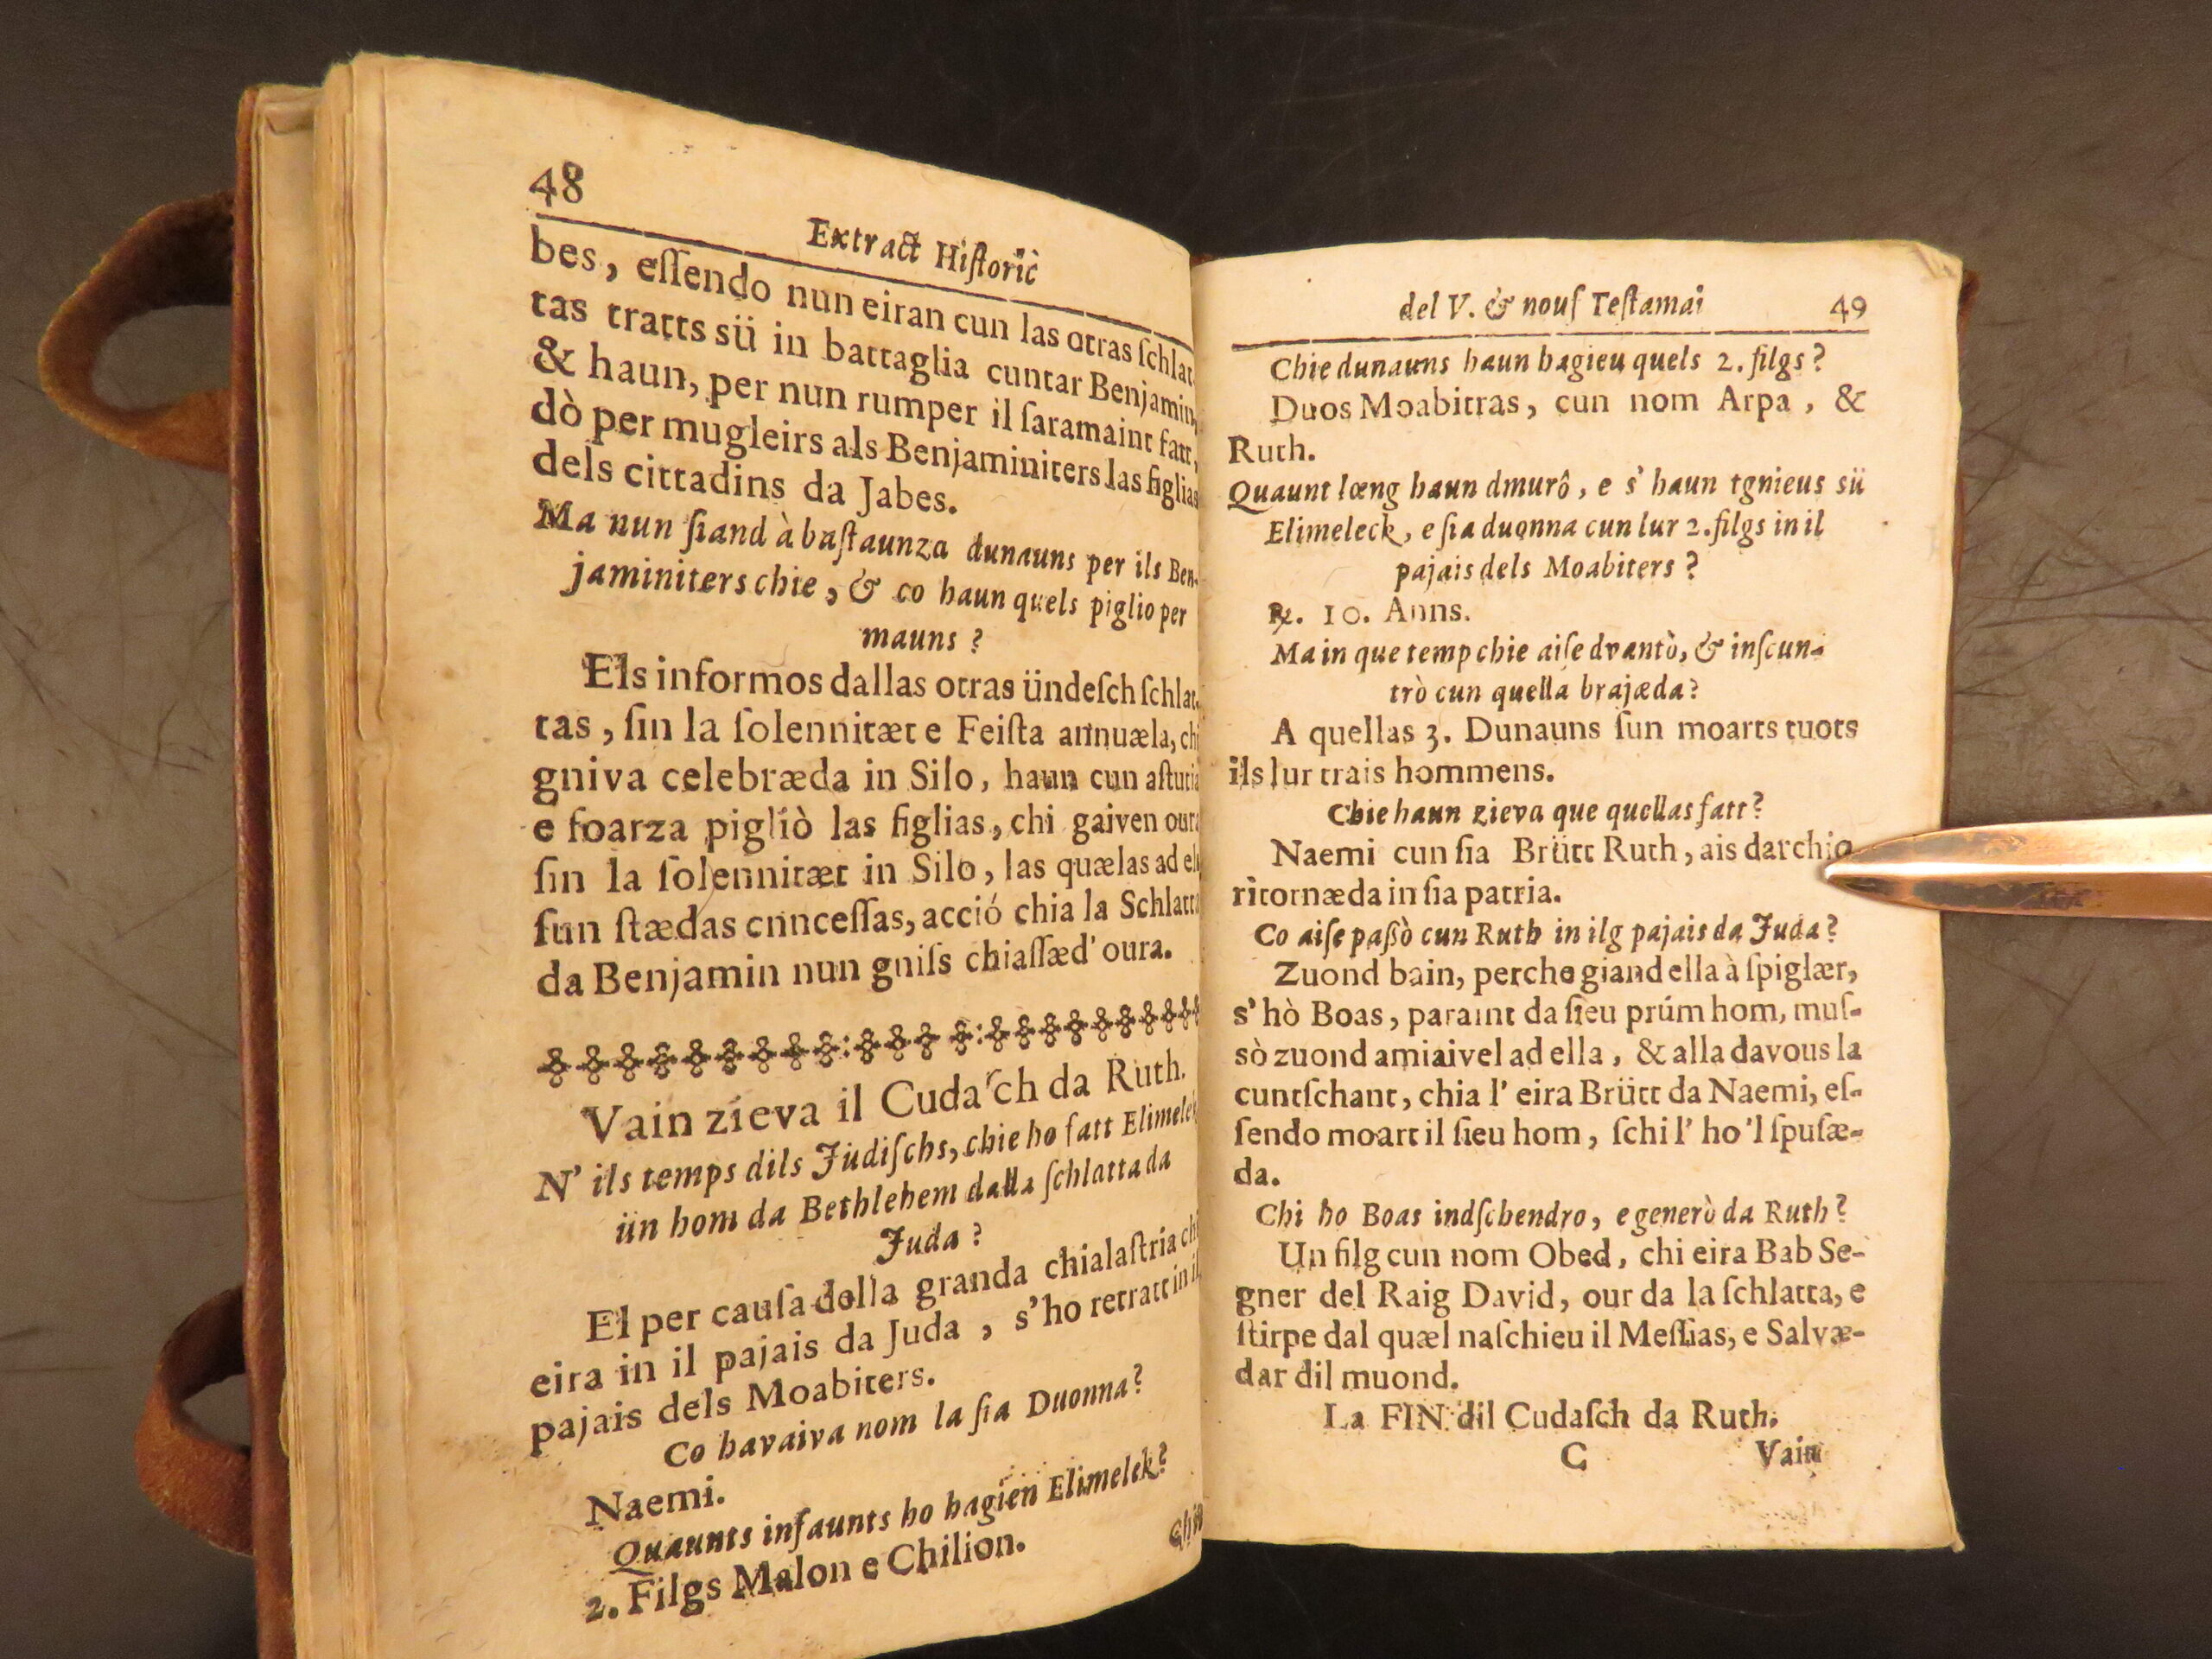 48
Extract Hiſtoric̀
bes, eſſendo nun eiran cun las otras ſchlat-
tas tratts sü in battaglia cuntar Benjamin,
& haun, per nun rumper il ſaramaint fatt,
dò per mugleirs als Benjaminiters las figlias
dels cittadins da Jabes.
Ma nun ſiand à baſtaunza dunauns per ils Ben-
jaminiters chie, & co haun quels piglio per
mauns ?
Els informos dallas otras ündeſch ſchlat-
tas, ſin la ſolennitæt e Feiſta annuæla, chi
gniva celebræda in Silo, haun cun aſtutia
e foarza pigliò las figlias, chi gaiven oura
ſin la ſolennitæt in Silo, las quælas ad els
ſun ſtædas cnnceſſas, acció chia la Schlatta
da Benjamin nun gniſs chiaſſæd' oura.
Vain zieva il Cudaſch da Ruth.
N' ils temps dils Jüdiſchs, chie ho fatt Elimelek
ün hom da Bethlehem dalla ſchlatta da
Juda ?
El per cauſa della granda chialaſtria chi
eira in il pajais da Juda, s'ho retratt in il
pajais dels Moabiters.
Co havaiva nom la ſia Duonna?
Naemi.
Quaunts infaunts ho hagieu Elimelek?
2. Filgs Malon e Chilion.
Chie
del V. & nouf Teſtamai
49
Chie dunauns haun hagieu quels 2. filgs?
Duos Moabitras, cun nom Arpa, &
Ruth.
Quaunt lœng haun dmurô, e s' haun tgnieus sü
Elimeleck, e ſia duonna cun lur 2. filgs in il
pajais dels Moabiters ?
℞. 10. Anns.
Ma in que temp chie aiſe dvantò, & inſcun-
trò cun quella brajæda?
A quellas 3. Dunauns ſun moarts tuots
ils lur trais hommens.
Chie haun zieva que quellas fatt?
Naemi cun ſia Brütt Ruth, ais darchio
ritornæda in ſia patria.
Co aiſe paßò cun Ruth in ilg pajais da Juda?
Zuond bain, perche giand ella à ſpiglær,
s' hò Boas, paraint da ſieu prúm hom, muſ-
sò zuond amiaivel ad ella, & alla davous la
cuntſchant, chia l' eira Brütt da Naemi, eſ-
ſendo moart il ſieu hom, ſchi l' ho 'l ſpuſæ-
da.
Chi ho Boas indſchendro, e generò da Ruth?
Un filg cun nom Obed, chi eira Bab Se-
gner del Raig David, our da la ſchlatta, e
ſtirpe dal quæl naſchieu il Meſſias, e Salvæ-
dar dil muond.
La FIN dil Cudaſch da Ruth.
C
Vain